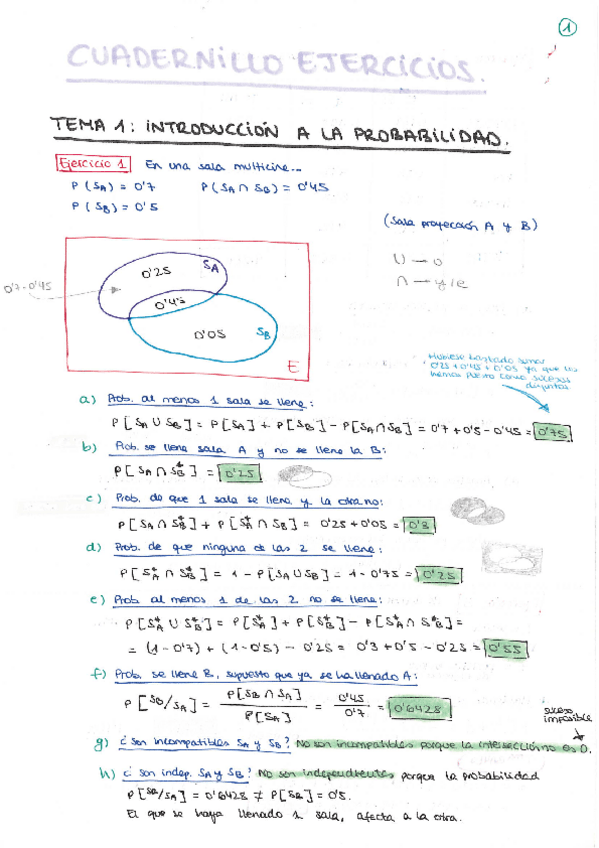 1
CUADERNILLO EJERCICIOS.
TEMA 1: INTRODUCCIÓN A LA PROBABILIDAD.
Ejercicio 1 En una sala multicine...
P(SA) = 0'7 P(SA ∩ SB) = 0'45
P(SB) = 0'5
(Sala proyección A y B)
U → o
∩ → y/e
0'7-0'45
0'25 SA
0'45
0'05 SB
E
Hubiese bastado sumar
0'25+0'45+0'05 ya que los
hemos puesto como sucesos
disjuntos
a) Prob. al menos 1 sala se llene:
P[SA ∪ SB] = P[SA] + P[SB] - P[SA∩SB] = 0'7+0'5-0'45 = 0'75
b) Prob. se llene sala A y no se llene la B:
P[SA ∩ SB*] = 0'25
c) Prob. de que 1 sala se llene y la otra no:
P[SA ∩ SB*] + P[SA* ∩ SB] = 0'25+0'05 = 0'3
d) Prob. de que ninguna de las 2 se llene:
P[SA* ∩ SB*] = 1 - P[SA ∪ SB] = 1-0'75 = 0'25
e) Prob al menos 1 de las 2 no se llene:
P[SA* ∪ SB*] = P[SA*] + P[SB*] - P[SA* ∩ SB*] =
= (1-0'7) + (1-0'5) - 0'25 = 0'3+0'5-0'25 = 0'55
f) Prob. se llene B, supuesto que ya se ha llenado A:
P[SB/SA] = P[SB ∩ SA] / P[SA] = 0'45 / 0'7 = 0'6428
suceso
imposible
g) ¿Son incompatibles SA y SB? No son incompatibles porque la intersección no es 0.
h) ¿Son indep. SA y SB? No son independientes porque la probabilidad
P[SB/SA] = 0'6428 ≠ P[SB] = 0'5.
El que se haya llenado 1 sala, afecta a la otra.